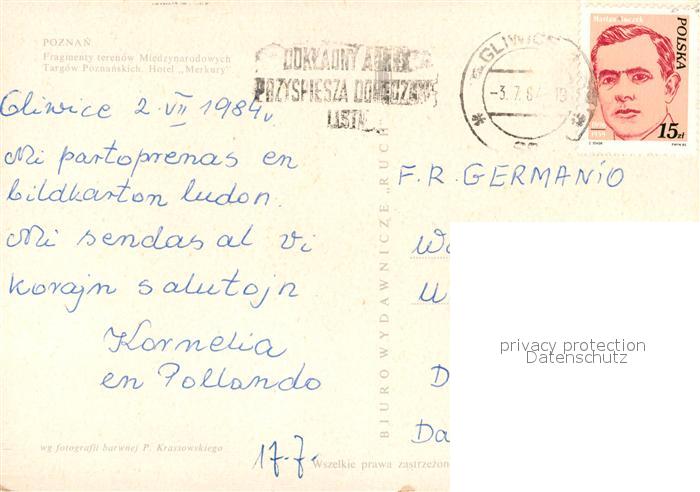 POZNAŃ
Fragmenty terenów Międzynarodowych
Targów Poznańskich. Hotel „Merkury"
DOKŁADNY ADRES
PRZYSPIESZA DORĘCZENIE
LISTU
GLIWICE
-3.7.84
Marian Buczek
POLSKA
15 zł
Gliwice 2 VII 1984r.
Mi partoprenas en
bildkarton ludon.
Mi sendas al vi
korajn salutojn
Kornelia
en Pollando
17.7.
F.R. GERMANIO
D
Da
BIURO WYDAWNICZE „RUC
privacy protection
Datenschutz
wg fotografii barwnej P. Krassowskiego
Wszelkie prawa zastrzeżon